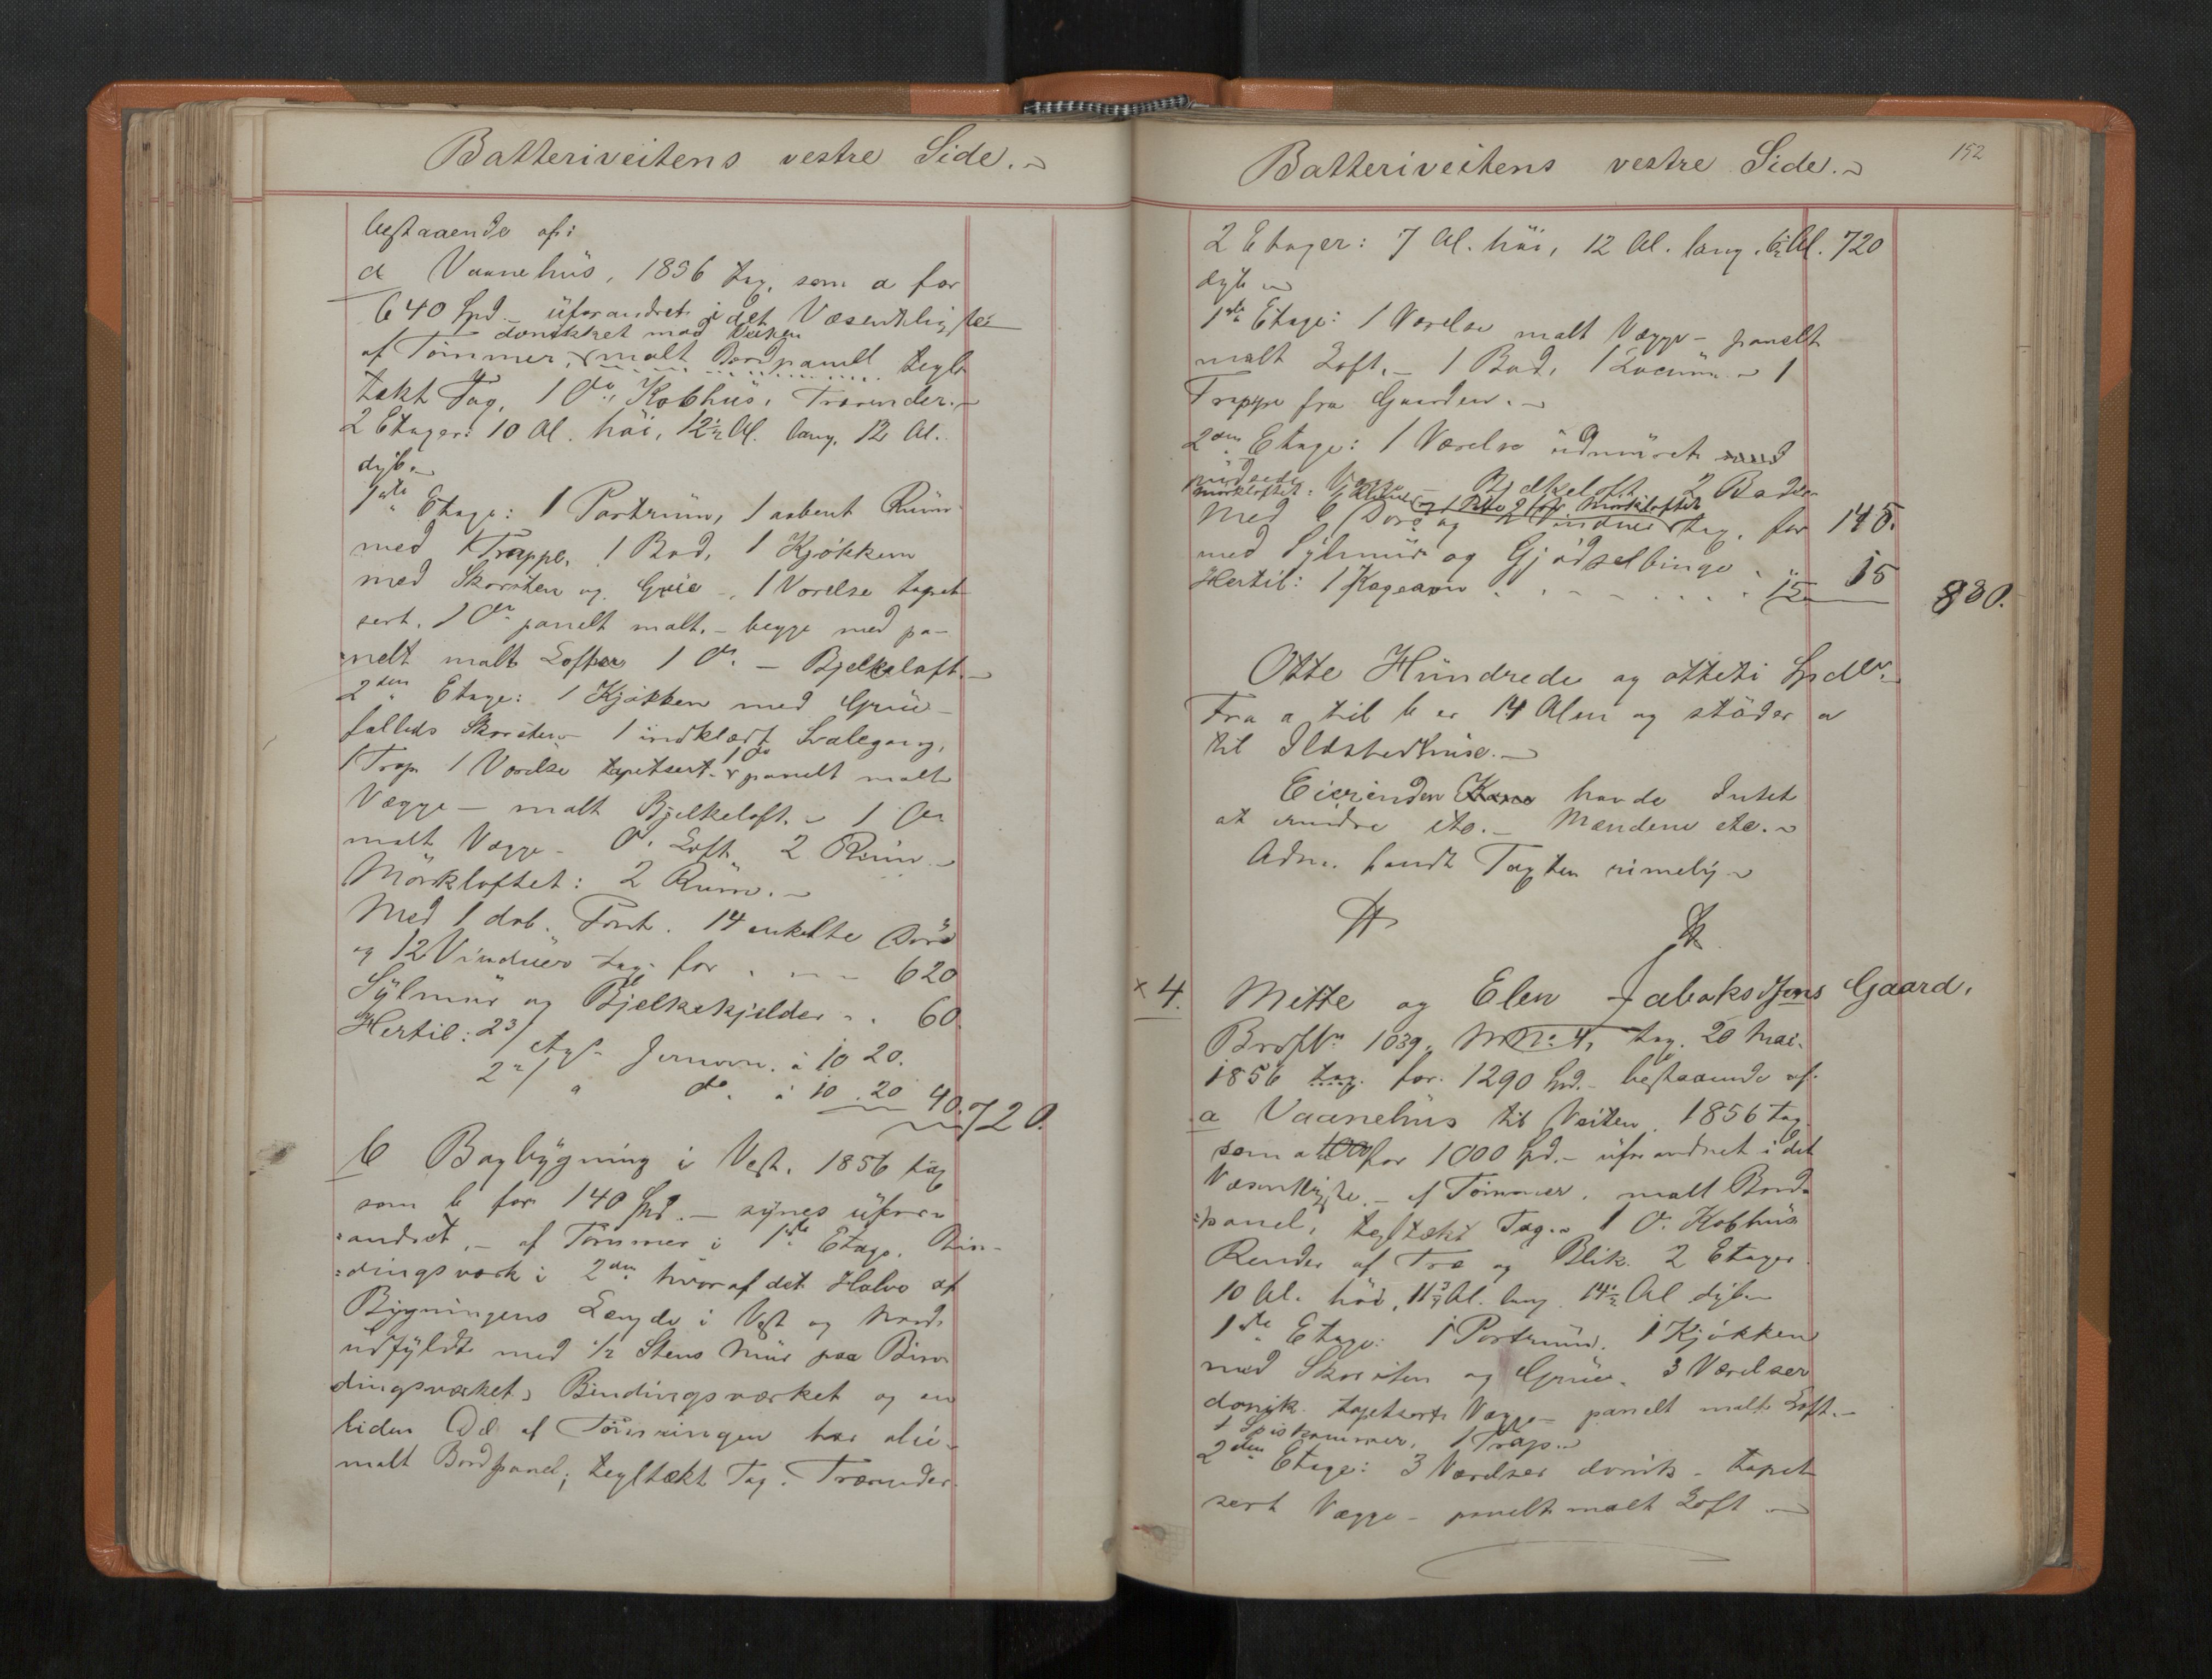 Batteriveitens vestre Side.
bestaaende af:
a Vaanehus, 1856 tax. som a for
640 Spd. uforandret i det Væsentligste
donikket mod Veiten
af Tømmer, malt Bordpanel tegl-
tækt Tag, 1 do Kobhus, Trærender.
2 Etager: 10 Al. høi, 12½ Al. lang, 12 Al.
dyb.
1ste Etage: 1 Portrum, 1 aabent Rum
med 1 Trappe, 1 Bod, 1 Kjøkken
med Skorsten og Grue, 1 Værelse tapet-
sert. 1 do panelt malt. begge med pa-
nelt malt Lofter 1 do. Bjelkeloft.
2den Etage: 1 Kjøkken med Grue
fælleds Skorsten 1 indklædt Svalegang,
1 Trap 1 Værelse tapetsert. 1 do panelt malt
Vægge malt Bjelkeloft. 1 do
malt Vægge do. Loft 2 Rum.
Mørkloftet: 2 Rum.
Med 1 dob. Port. 14 enkelte Døre
og 12 Vinduer tax. for 620
Sylmur og Bjelkekjelder 60
Hertil: 2 3/ etgs Jernovn. à 10 20.
2 2/ " do. à 10. 20 40. 720.
b Bagbygning i Vest. 1856 tax
som b for 140 Spd. synes ufor-
andret. af Tømmer i 1ste Etage. Bin-
dingsværk i 2den hvoraf det Halve af
Bygningens Længde i Vest og Nord
udfyldt med ½ Stens Mur paa Bin-
dingsværket, Bindingsværket og en
liden Del af Tømringen har olie-
malt Bordpanel; tegltækt Tag. Trærender.
Batteriveitens vestre Side.
152
2 Etager: 7 Al. høi, 12 Al. lang. 6½ Al. 720
dyb
1ste Etage: 1 Værelse malt Vægge panelt
malt Loft. 1 Bod, 1 Locum 1
Trappe fra Gaarden.
2den Etage: 1 Værelse udmuret
pudsede Vægge Bjelkeloft 2 Boder
Mørkloftet: 1 Rum
Med 6 Døre og 2 Vinduer tax. for 145.
med Sylmur og Gjødselbinge 15
Hertil: 1 Kogeovn 15 880.
Otte Hundrede og otteti Spdlr.
Fra a til b er 14 Alen og støder a
til Ildstedhuse.
Eierinden havde Intet
at erindre etc. Mændene etc.
Adm. fandt Taxten rimelig
× 4. Mette og Elen Jakobsdtrs Gaard.
Brdfl. 1039, M No. 4, tax. 20 Mai
1856 tax. for. 1290 Spd. bestaaende af:
a Vaanehus til Veiten. 1856 tax.
som a for 1000 Spd. uforandret i det
Væsentligste af Tømmer. malt Bord-
panel, tegltækt Tag. 1 do. Kobhus
Render af Træ og Blik. 2 Etager
10 Al. høi, 11¾ Al. lang 14½ Al dyb
1ste Etage: 1 Portrum. 1 Kjøkken
med Skorsten og Grue. 3 Værelser
donik. tapetsert Vægge panelt malt Loft.
1 Spiskammer, 1 Trap.
2den Etage: 3 Værelser donik. tapet-
sert Vægge panelt malt Loft